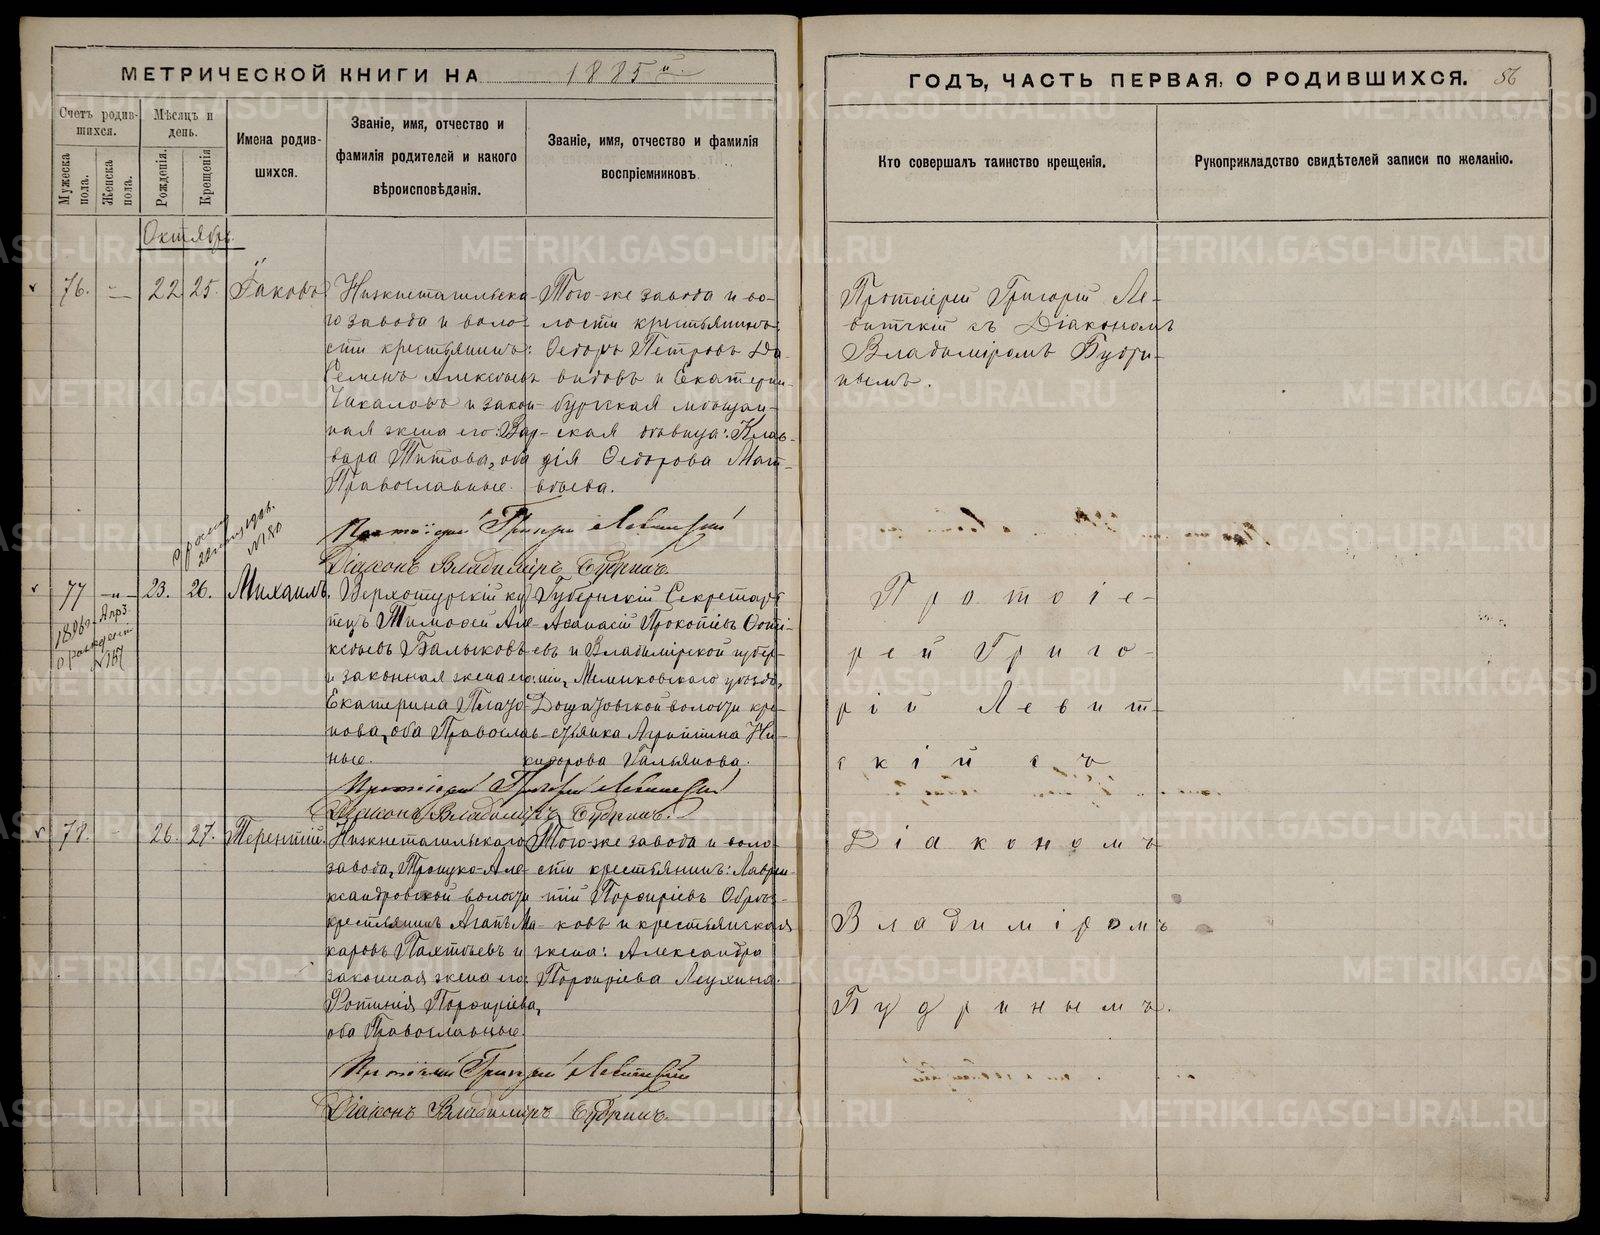 МЕТРИЧЕСКОЙ КНИГИ НА 1885й.
ГОДЪ, ЧАСТЬ ПЕРВАЯ, О РОДИВШИХСЯ. 56
Счетъ родив-
шихся.
Мужеска пола.
Женска пола.
Мѣсяцъ и
день.
Рожденія.
Крещенія
Имена родив-
шихся.
Званіе, имя, отчество и
фамилія родителей и какого
вѣроисповѣданія.
Званіе, имя, отчество и фамилія
воспріемниковъ.
Кто совершалъ таинство крещенія.
Рукоприкладство свидѣтелей записи по желанію.
Октябрь.
76. — 22 25. Іаковъ
Нижнетагильска-
го завода и воло-
сти крестьянинъ:
Семенъ Алексѣевъ
Чикаловъ и закон-
ная жена его: Вар-
вара Титова, оба
Православные.
Того-же завода и во-
лости крестьянинъ
Ѳедоръ Петровъ Да-
видовъ и Екатерин-
бургская мѣщан-
ская дѣвица: Клав-
дія Ѳедорова Мат-
вѣева.
Протоіерей Григорій Ле-
витскій съ Діакономъ
Владиміромъ Будри-
нымъ.
Протоіерей Григорій Левитскій
Діаконъ Владиміръ Будринъ.
№ 180
77 —"— 23. 26. Михаилъ.
1896 г. Апр 3.
о рожденіи
№ 157
Верхотурскій ку-
пецъ Тимоѳей Але-
ксѣевъ Балыковъ
и законная жена его:
Екатерина Плато-
нова, оба Православ-
ные.
Губернскій Секретарь
Аѳанасій Прокопіевъ
евъ и Владимірской губер-
ніи, Меленковскаго уѣзда,
Дощатовской волости кре-
стьянка Агриппина Ни-
кифорова Гальянова.
Протоіе-
рей Григо-
рій Левит-
скій съ
Діакономъ
Владиміромъ
Будринымъ.
Протоіерей Григорій Левитскій
Діаконъ Владиміръ Будринъ.
78. - 26. 27. Терентій.
Нижнетагильскаго
завода, Троицко-Але-
ксандровской волости
крестьянинъ Агапъ Ма-
каровъ Пахтѣевъ и
законная жена его:
Фотинія Порфиріева,
оба Православные.
Того-же завода и воло-
сти крестьянинъ: Лаврен-
тій Порфиріевъ
ковъ и крестьянская
жена: Александра
Порфиріева Леухина.
Протоіерей Григорій Левитскій
Діаконъ Владиміръ Будринъ.
METRIKI.GASO-URAL.RU